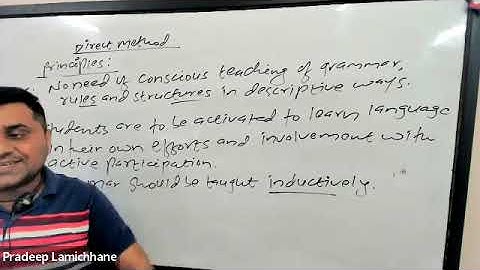 Direct Method
Principles:
No need of conscious teaching of grammar,
rules and structures in descriptive ways.
students are to be activated to learn language
in their own efforts and involvement with
active participation.
mar should be taught inductively.
Pradeep Lamichhane